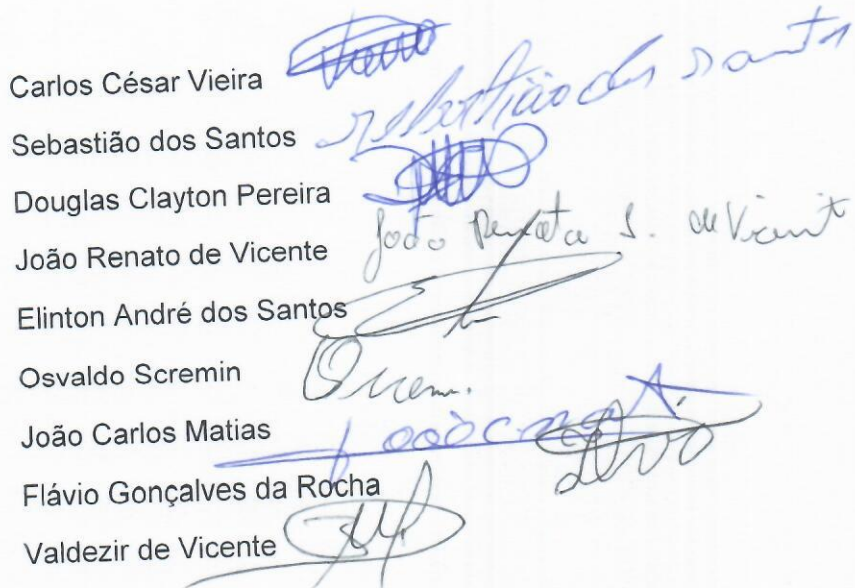 Carlos César Vieira
Sebastião dos Santos Sebastião dos Santos
Douglas Clayton Pereira
João Renato de Vicente João Renato S. de Vicent
Elinton André dos Santos
Osvaldo Scremin
João Carlos Matias
Flávio Gonçalves da Rocha
Valdezir de Vicente